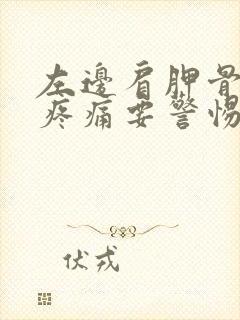 左邊肩胛骨
疼痛要警惕
伏戎